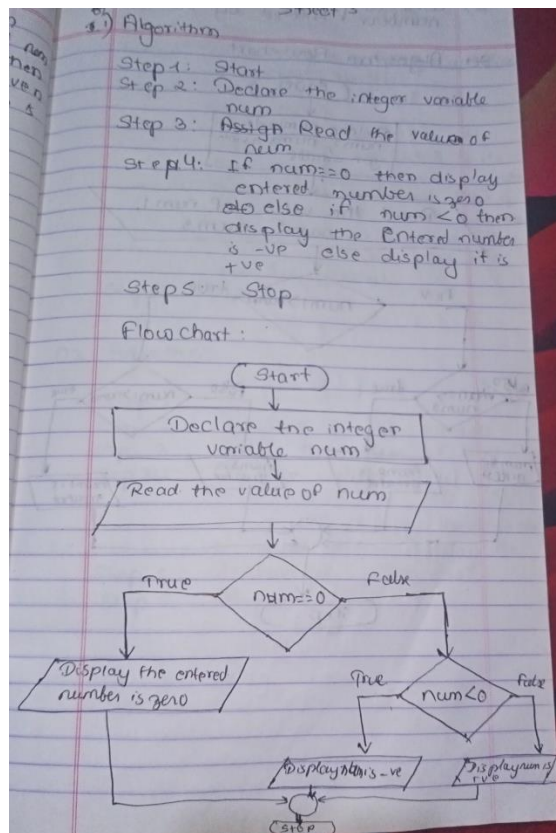 1) Algorithm
num
hen
ven
s
Step 1: Start
Step 2: Declare the integer variable
num
Step 3: Assign Read the value of
num
Step 4: If num==0 then display
entered number is zero
else if num <0 then
display the Entered number
is -ve else display it is
+ve
Step 5 Stop
Flow chart :
Start
Declare the integer
variable num
Read the value of num
True
num==0
False
Display the entered
number is zero
True
num<0
False
Display num is -ve
Display num is
+ve
Stop